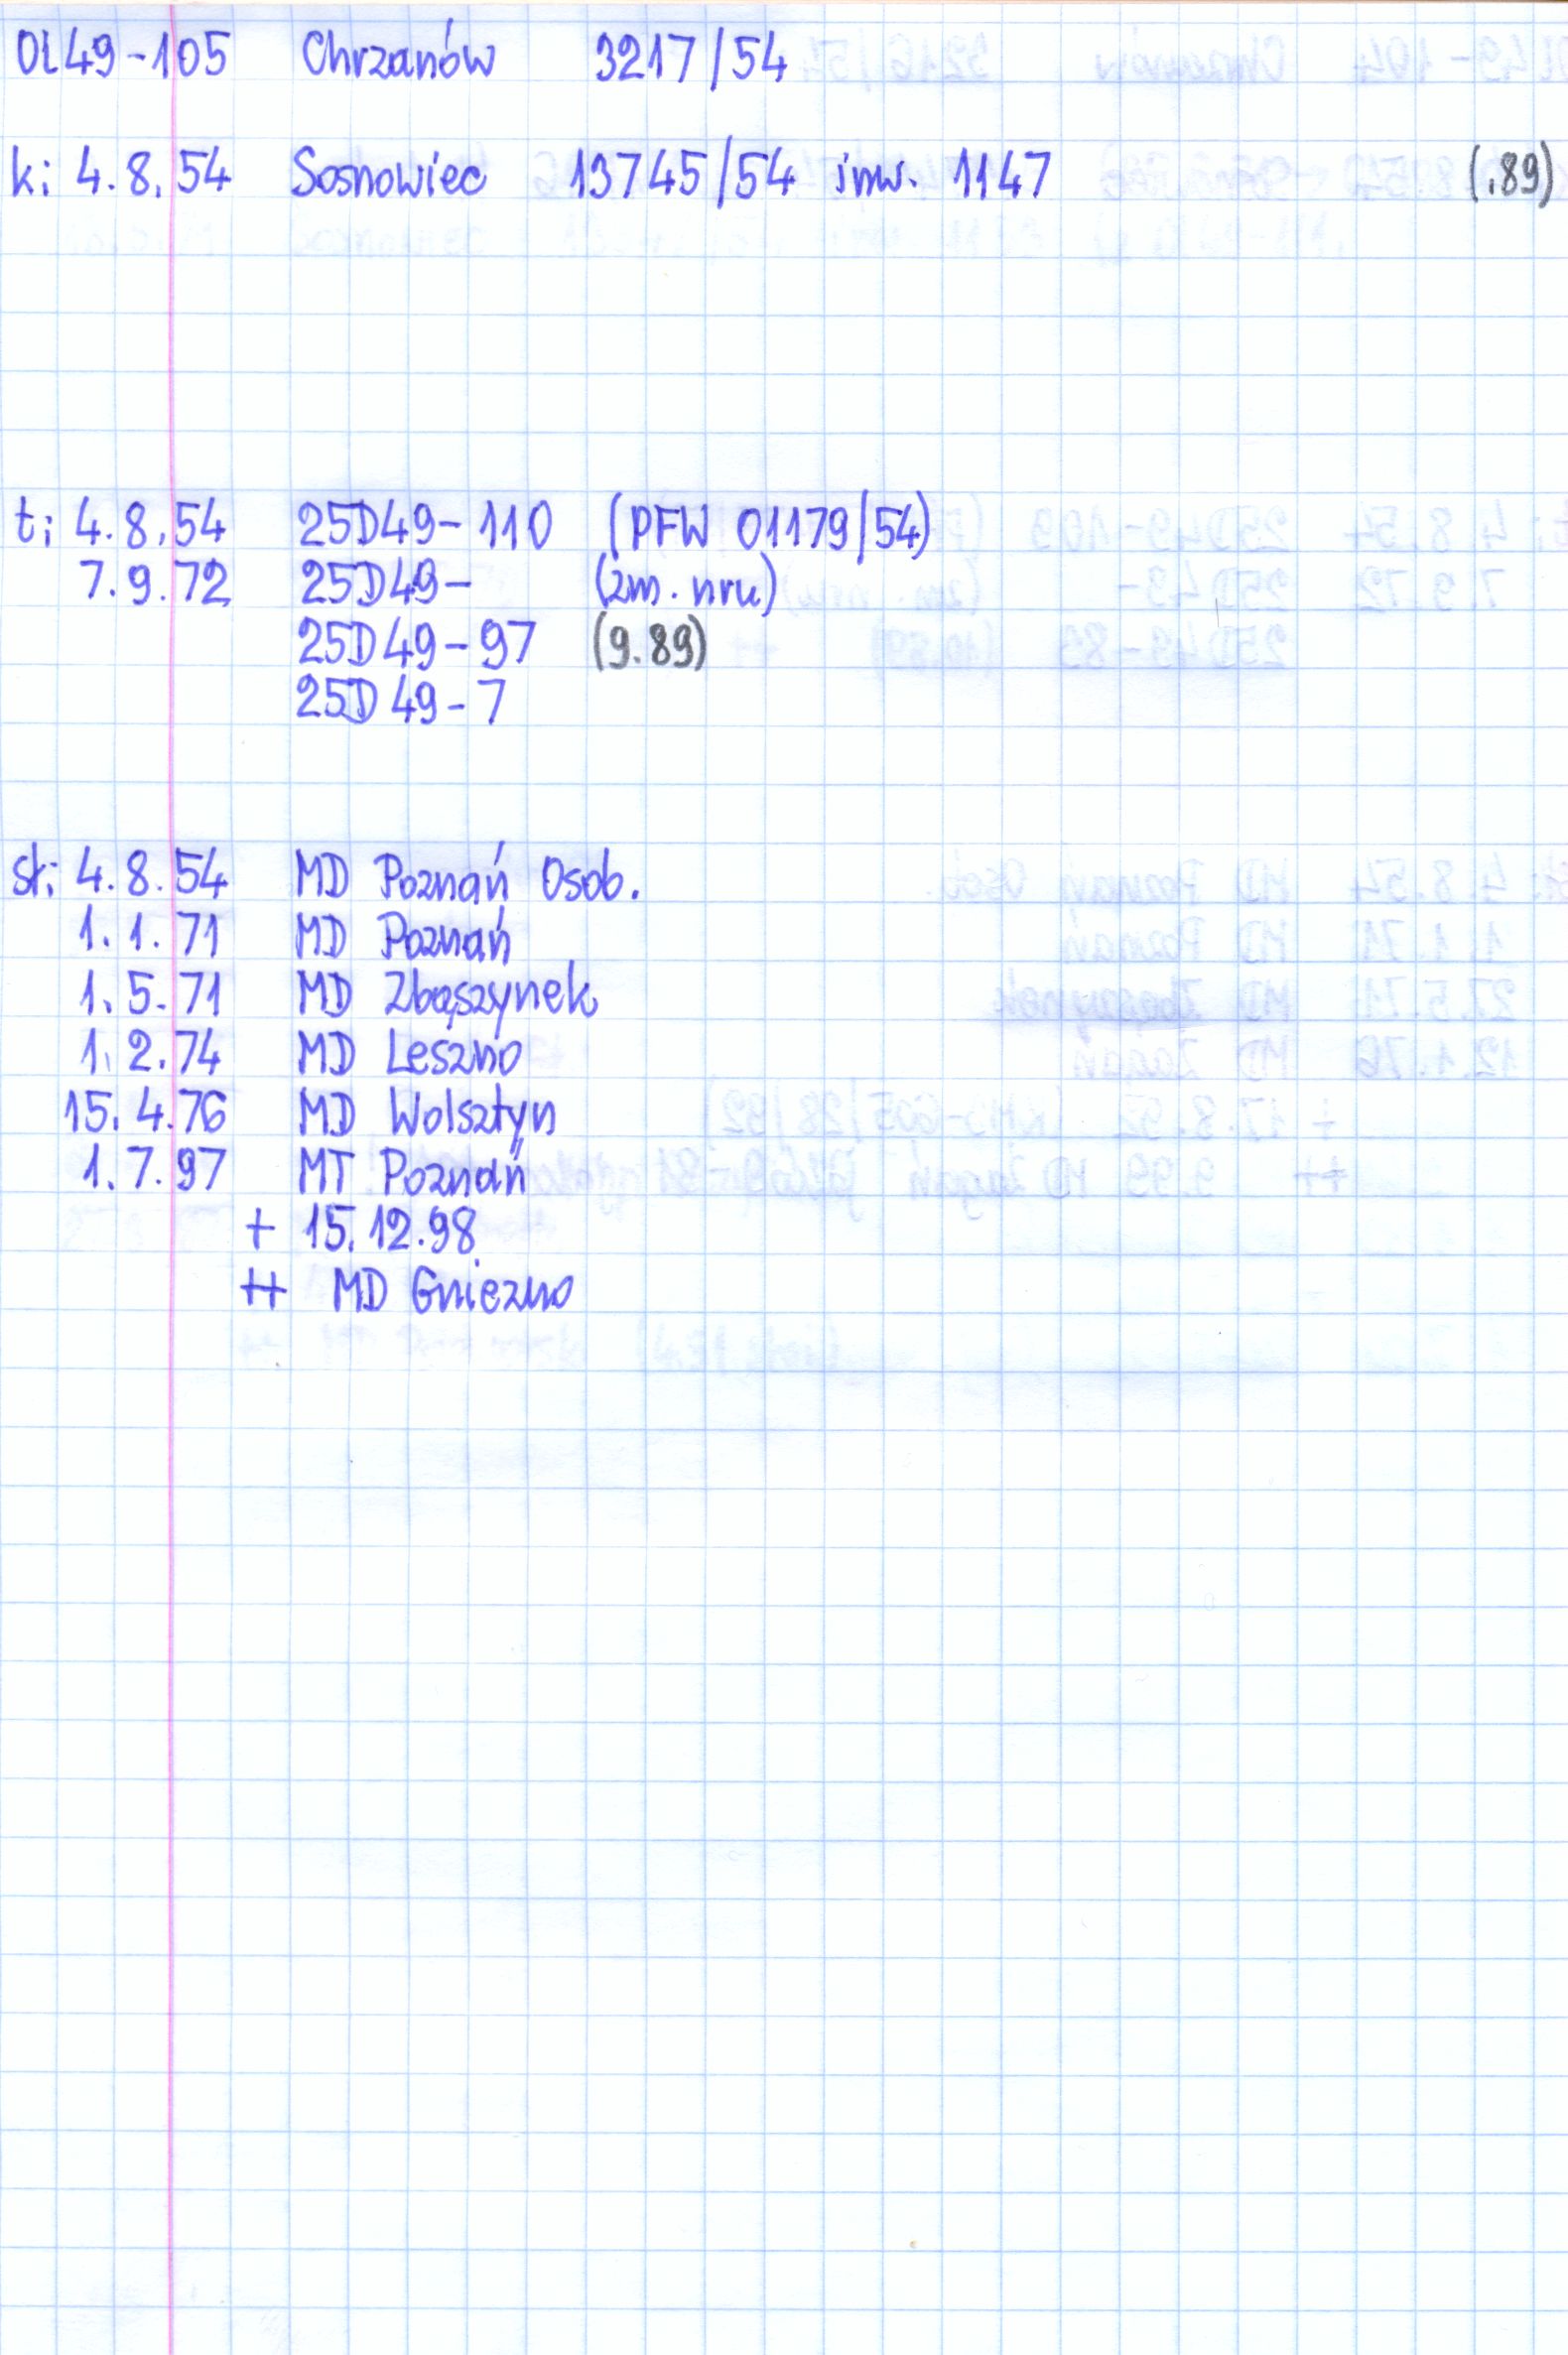 Ol49-105 Chrzanów 3217/54
k: 4.8.54 Sosnowiec 13745/54 inw. 1147 (.89)
t: 4.8.54 25D49-110 (PFW 01179/54)
7.9.72 25D49- (zm. nru)
25D49-97 (9.89)
25D49-7
st: 4.8.54 MD Poznań Osob.
1.1.71 MD Poznań
1.5.71 MD Zbąszynek
1.2.74 MD Leszno
15.4.76 MD Wolsztyn
1.7.97 MT Poznań
+ 15.12.98
++ MD Gniezno